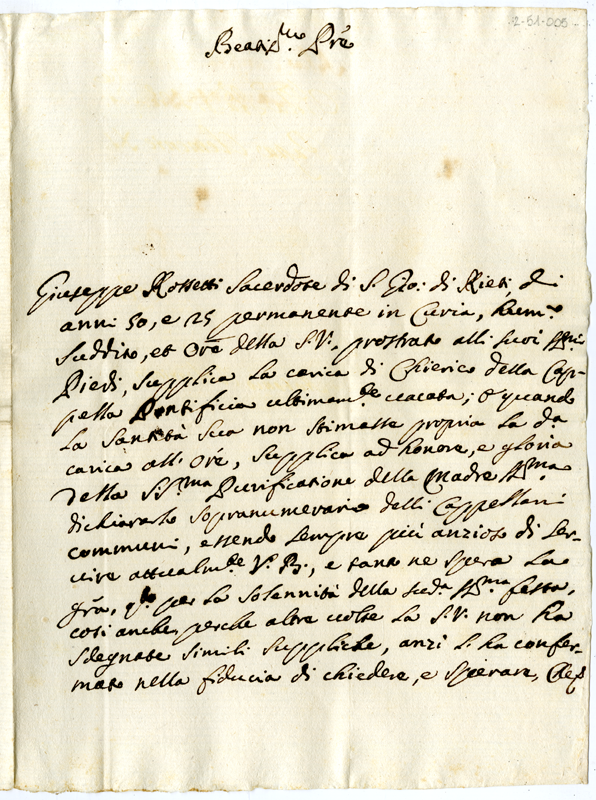 2-51-005
Beatis.mo Prē
Giuseppe Rossetti Sacerdote di S. Gio: di Rieti di
anni 50, e 25 permanente in Curia, hum.o
Suddito, et Orē della S.V., prostrato alli suoi SS.mi
Piedi, supplica la carica di Chierico della Cap-
pella Pontificia ultimam.te vacata; e quando
la Santità Sua non stimasse propria la d.a
carica all' Orē, supplica ad honore, e gloria
della SS.ma Purificatione della Madre SS.ma
dichiararlo sopranumerario delli Cappellani
communi, essendo sempre più anzioso di ser-
vire attualm.te V. B., e tanto ne spera la
grā, q.to per la solennità della sud.a SS.ma festa,
così anche, perche altre volte la S.V. non ha
sdegnate simili suppliche, anzi l'ha confer-
mato nella fiducia di chiedere, e sperare, Che